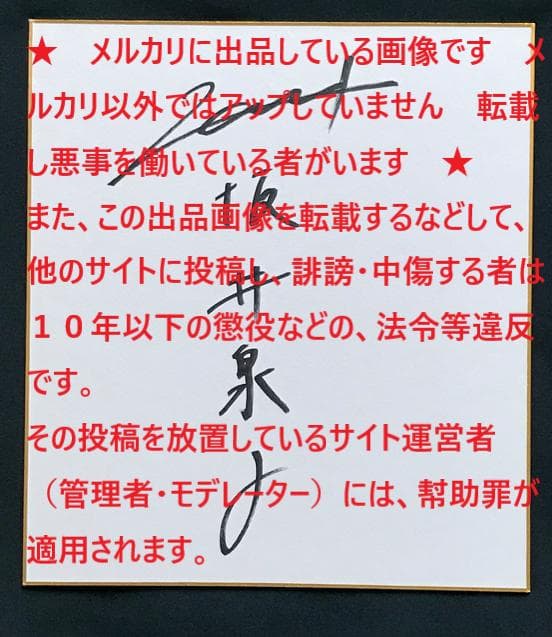 ★　メルカリに出品している画像です　メ
ルカリ以外ではアップしていません　転載
し悪事を働いている者がいます　★
また、この出品画像を転載するなどして、
他のサイトに投稿し、誹謗・中傷する者は
１０年以下の懲役などの、法令等違反
です。
その投稿を放置しているサイト運営者
（管理者・モデレーター）には、幇助罪が
適用されます。
坂井泉水